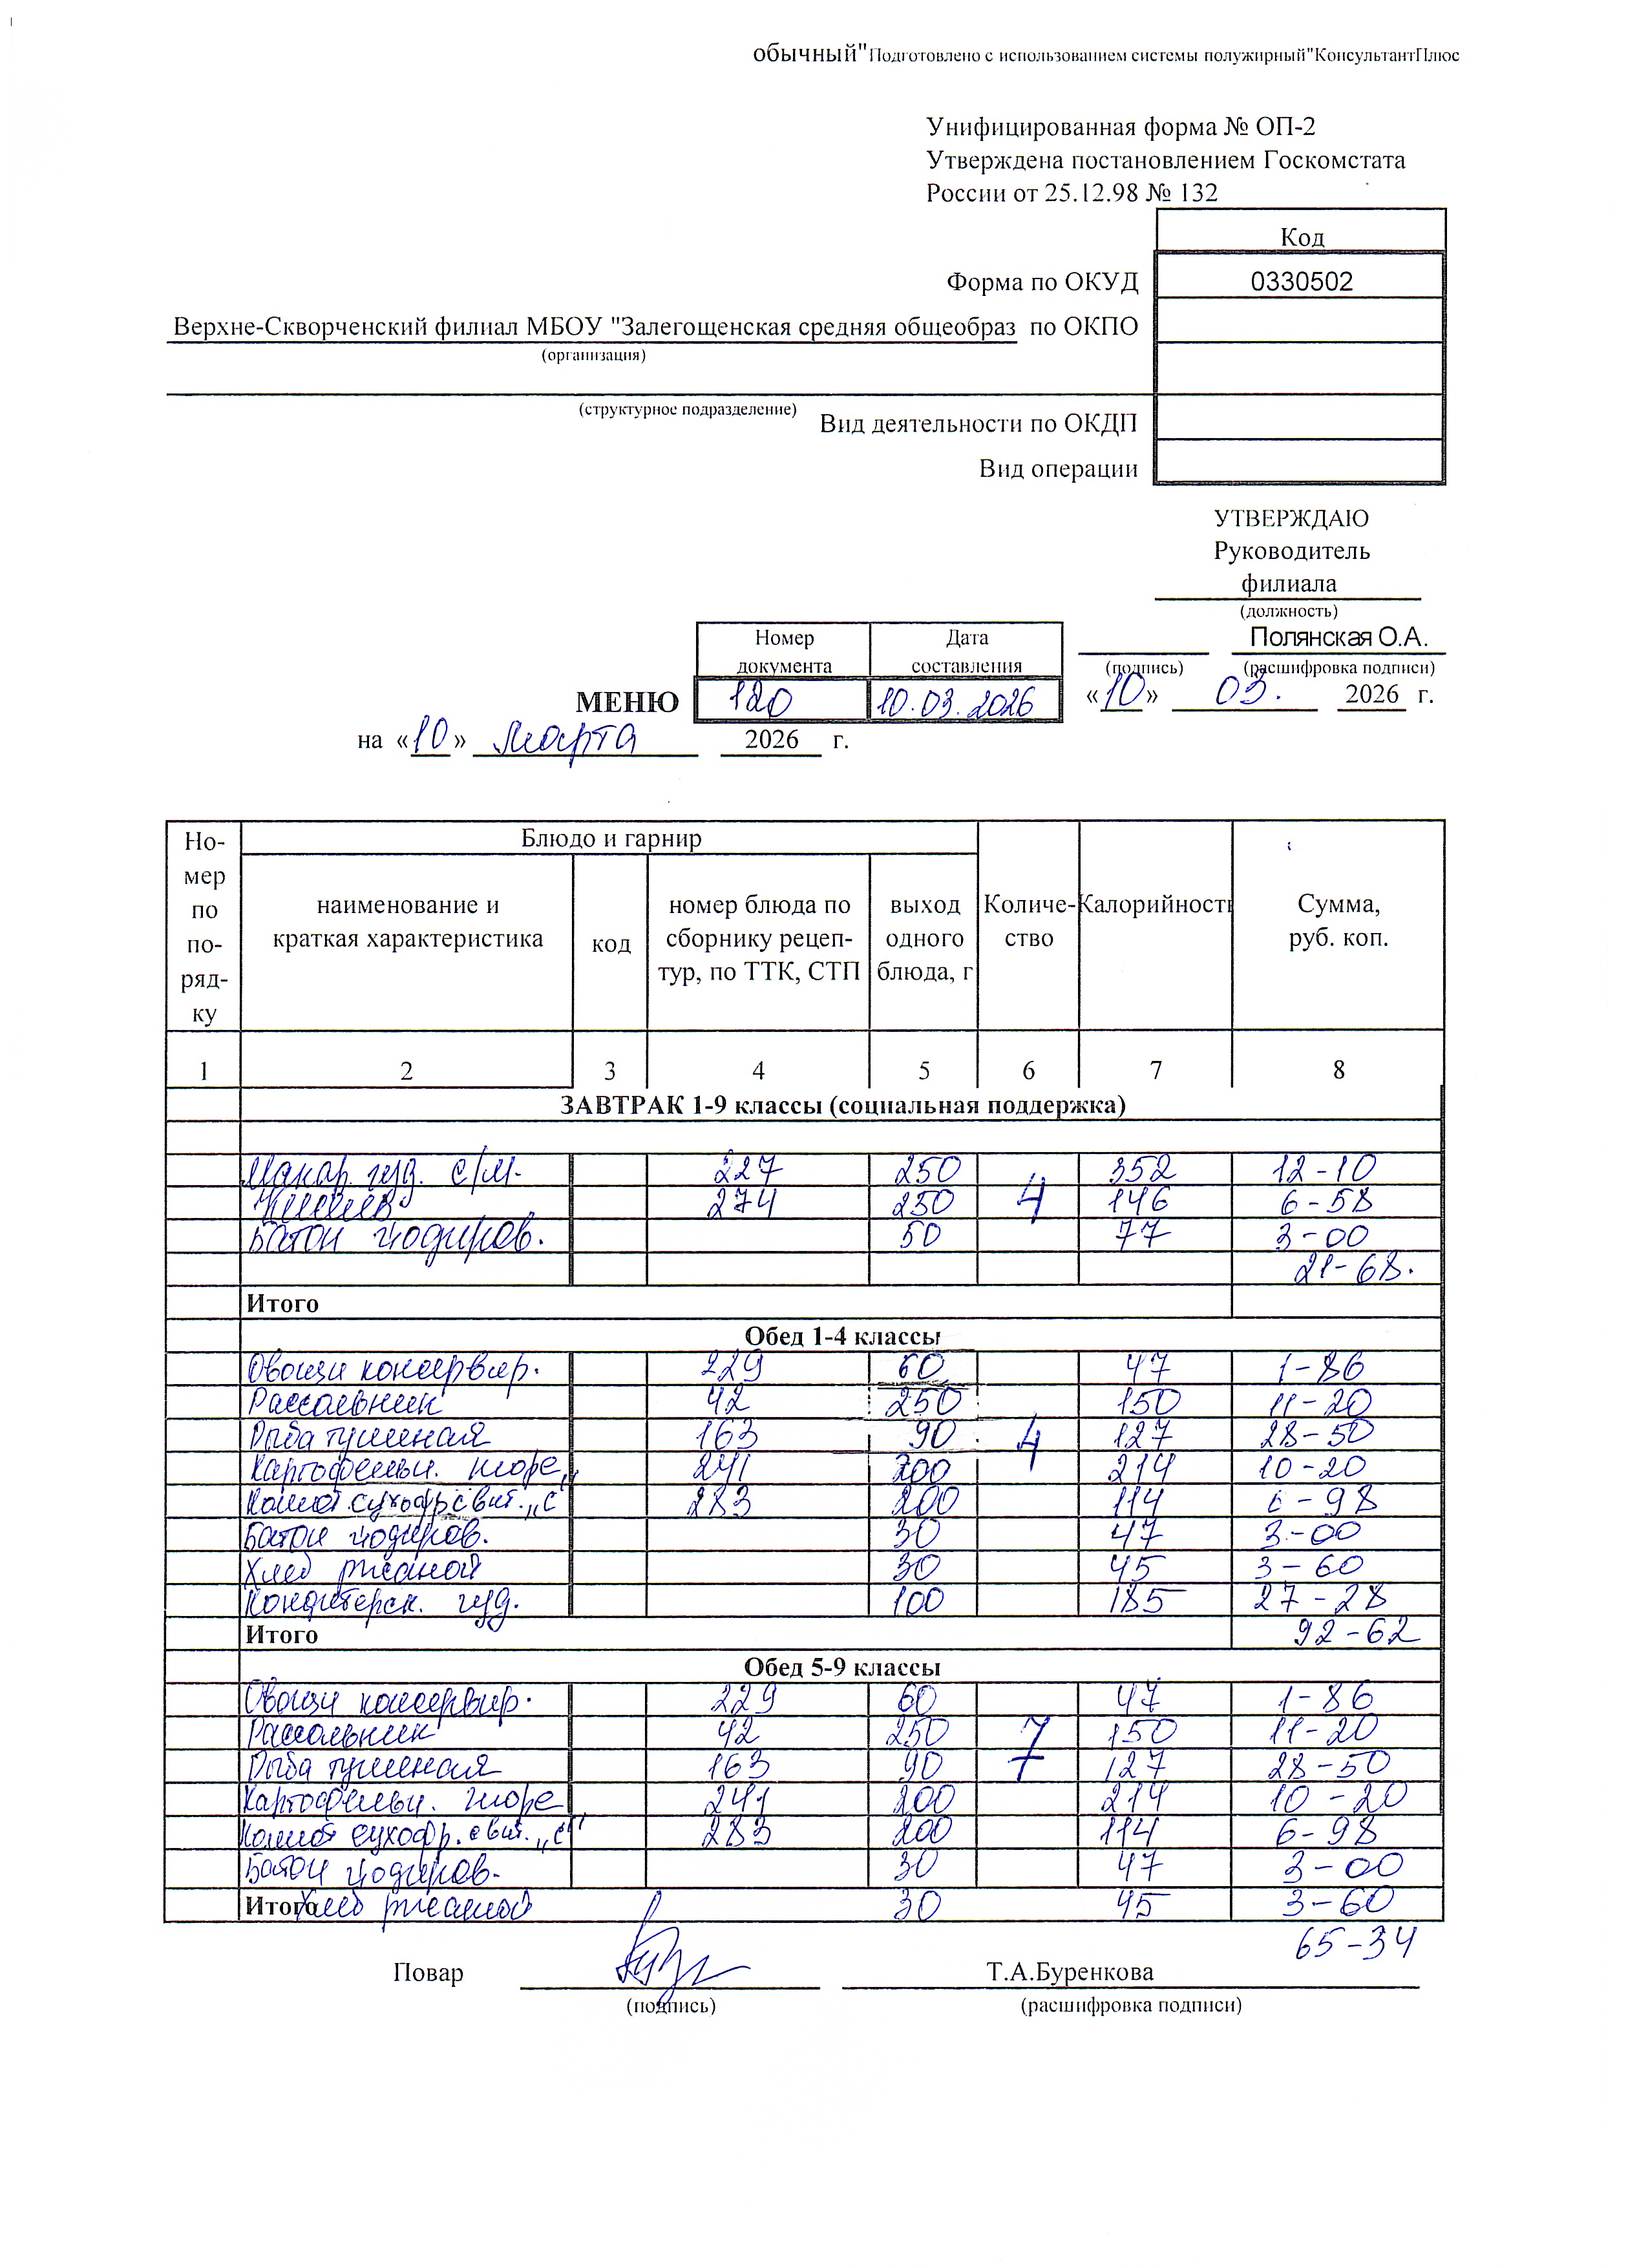 обычный"Подготовлено с использованием системы полужирный"КонсультантПлюс
Унифицированная форма № ОП-2
Утверждена постановлением Госкомстата
России от 25.12.98 № 132
Код
Форма по ОКУД 0330502
Верхне-Скворченский филиал МБОУ "Залегощенская средняя общеобраз по ОКПО
(организация)
(структурное подразделение)
Вид деятельности по ОКДП
Вид операции
УТВЕРЖДАЮ
Руководитель
филиала
(должность)
Полянская О.А.
(подпись) (расшифровка подписи)
Номер документа Дата составления
МЕНЮ 120 10.03.2026 «10» 03. 2026 г.
на «10» марта 2026 г.
Но-мер по по-ряд-ку Блюдо и гарнир Количе-ство Калорийность Сумма, руб. коп.
наименование и краткая характеристика код номер блюда по сборнику рецеп-тур, по ТТК, СТП выход одного блюда, г
1 2 3 4 5 6 7 8
ЗАВТРАК 1-9 классы (социальная поддержка)
Макар. изд. с/м. 227 250 352 12-10
274 250 4 146 6-58
Батон йодиров. 50 77 3-00
21-68.
Итого
Обед 1-4 классы
Овощи консервир. 229 60 47 1-86
Рассольник 42 250 150 11-20
Рыба тушеная 163 90 4 127 28-50
Картофельн. пюре 241 200 214 10-20
Компот сухофр. с вит. „С" 283 200 114 6-98
Батон йодиров. 30 47 3-00
Хлеб ржаной 30 45 3-60
Кондитерск. изд. 100 185 27-28
Итого 92-62
Обед 5-9 классы
Овощи консервир. 229 60 47 1-86
Рассольник 42 250 7 150 11-20
Рыба тушеная 163 90 127 28-50
Картофельн. пюре 241 200 214 10-20
Компот сухофр. с вит. „С" 283 200 114 6-98
Батон йодиров. 30 47 3-00
Итого Хлеб ржаной 30 45 3-60
65-34
Повар Т.А.Буренкова
(подпись) (расшифровка подписи)